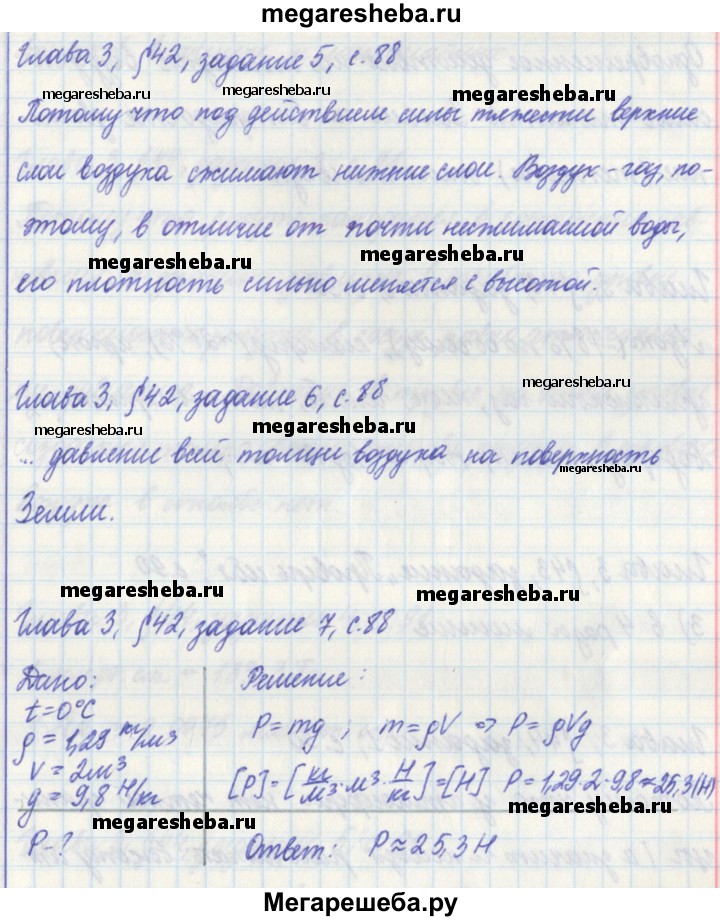 megaresheba.ru
Глава 3, §42, задание 5, с.88
megaresheba.ru megaresheba.ru megaresheba.ru
Потому что под действием силы тяжести верхние
слои воздуха сжимают нижние слои. Воздух - газ, по-
этому, в отличие от почти несжимаемой воды,
megaresheba.ru megaresheba.ru
его плотность сильно меняется с высотой.
Глава 3, §42, задание 6, с.88
megaresheba.ru
megaresheba.ru megaresheba.ru
... давление всей толщи воздуха на поверхность
megaresheba.ru
Земли.
megaresheba.ru megaresheba.ru
Глава 3, §42, задание 7, с.88
Дано: Решение:
t=0°C
ρ = 1,29 кг/м3 P = mg ; m = ρV => P = ρVg
V = 2м3
g = 9,8 Н/кг [P] = [кг/м3 · м3 · Н/кг] = [Н] P = 1,29·2·9,8 ≈ 25,3 (Н)
megaresheba.ru megaresheba.ru
P - ? Ответ: P ≈ 25,3 Н
Мегарешеба.ру